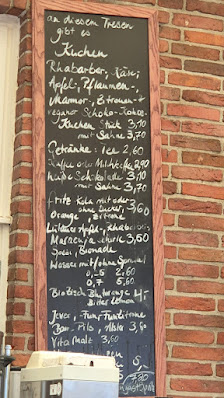 an diesem Tresen
gibt es
Kuchen
Rhabarber, Käse,
Apfel-, Pflaumen-,
Marmor-, Zitronen- +
veganer Schoko-Kokos-
Kuchen Stück 3,10
mit Sahne 3,70
Getränke: Tee 2,60
Kaffee oder Milchkaffee 2,90
heiße Schokolade 3,10
mit Sahne 3,70
fritz Kola mit oder
ohne Zucker, 3,60
Orange, Zitrone
Apfel-, Rhabarber-
Maracuja schorle 3,60
Bionade
Wasser mit/ohne Sprudel
0,5 2,60
0,7 5,60
Bio Zisch Blutorange 4,-
Bitter Lemon
Jever, -Fun,
Pils, Alster 3,60
Vita Malz 3,60